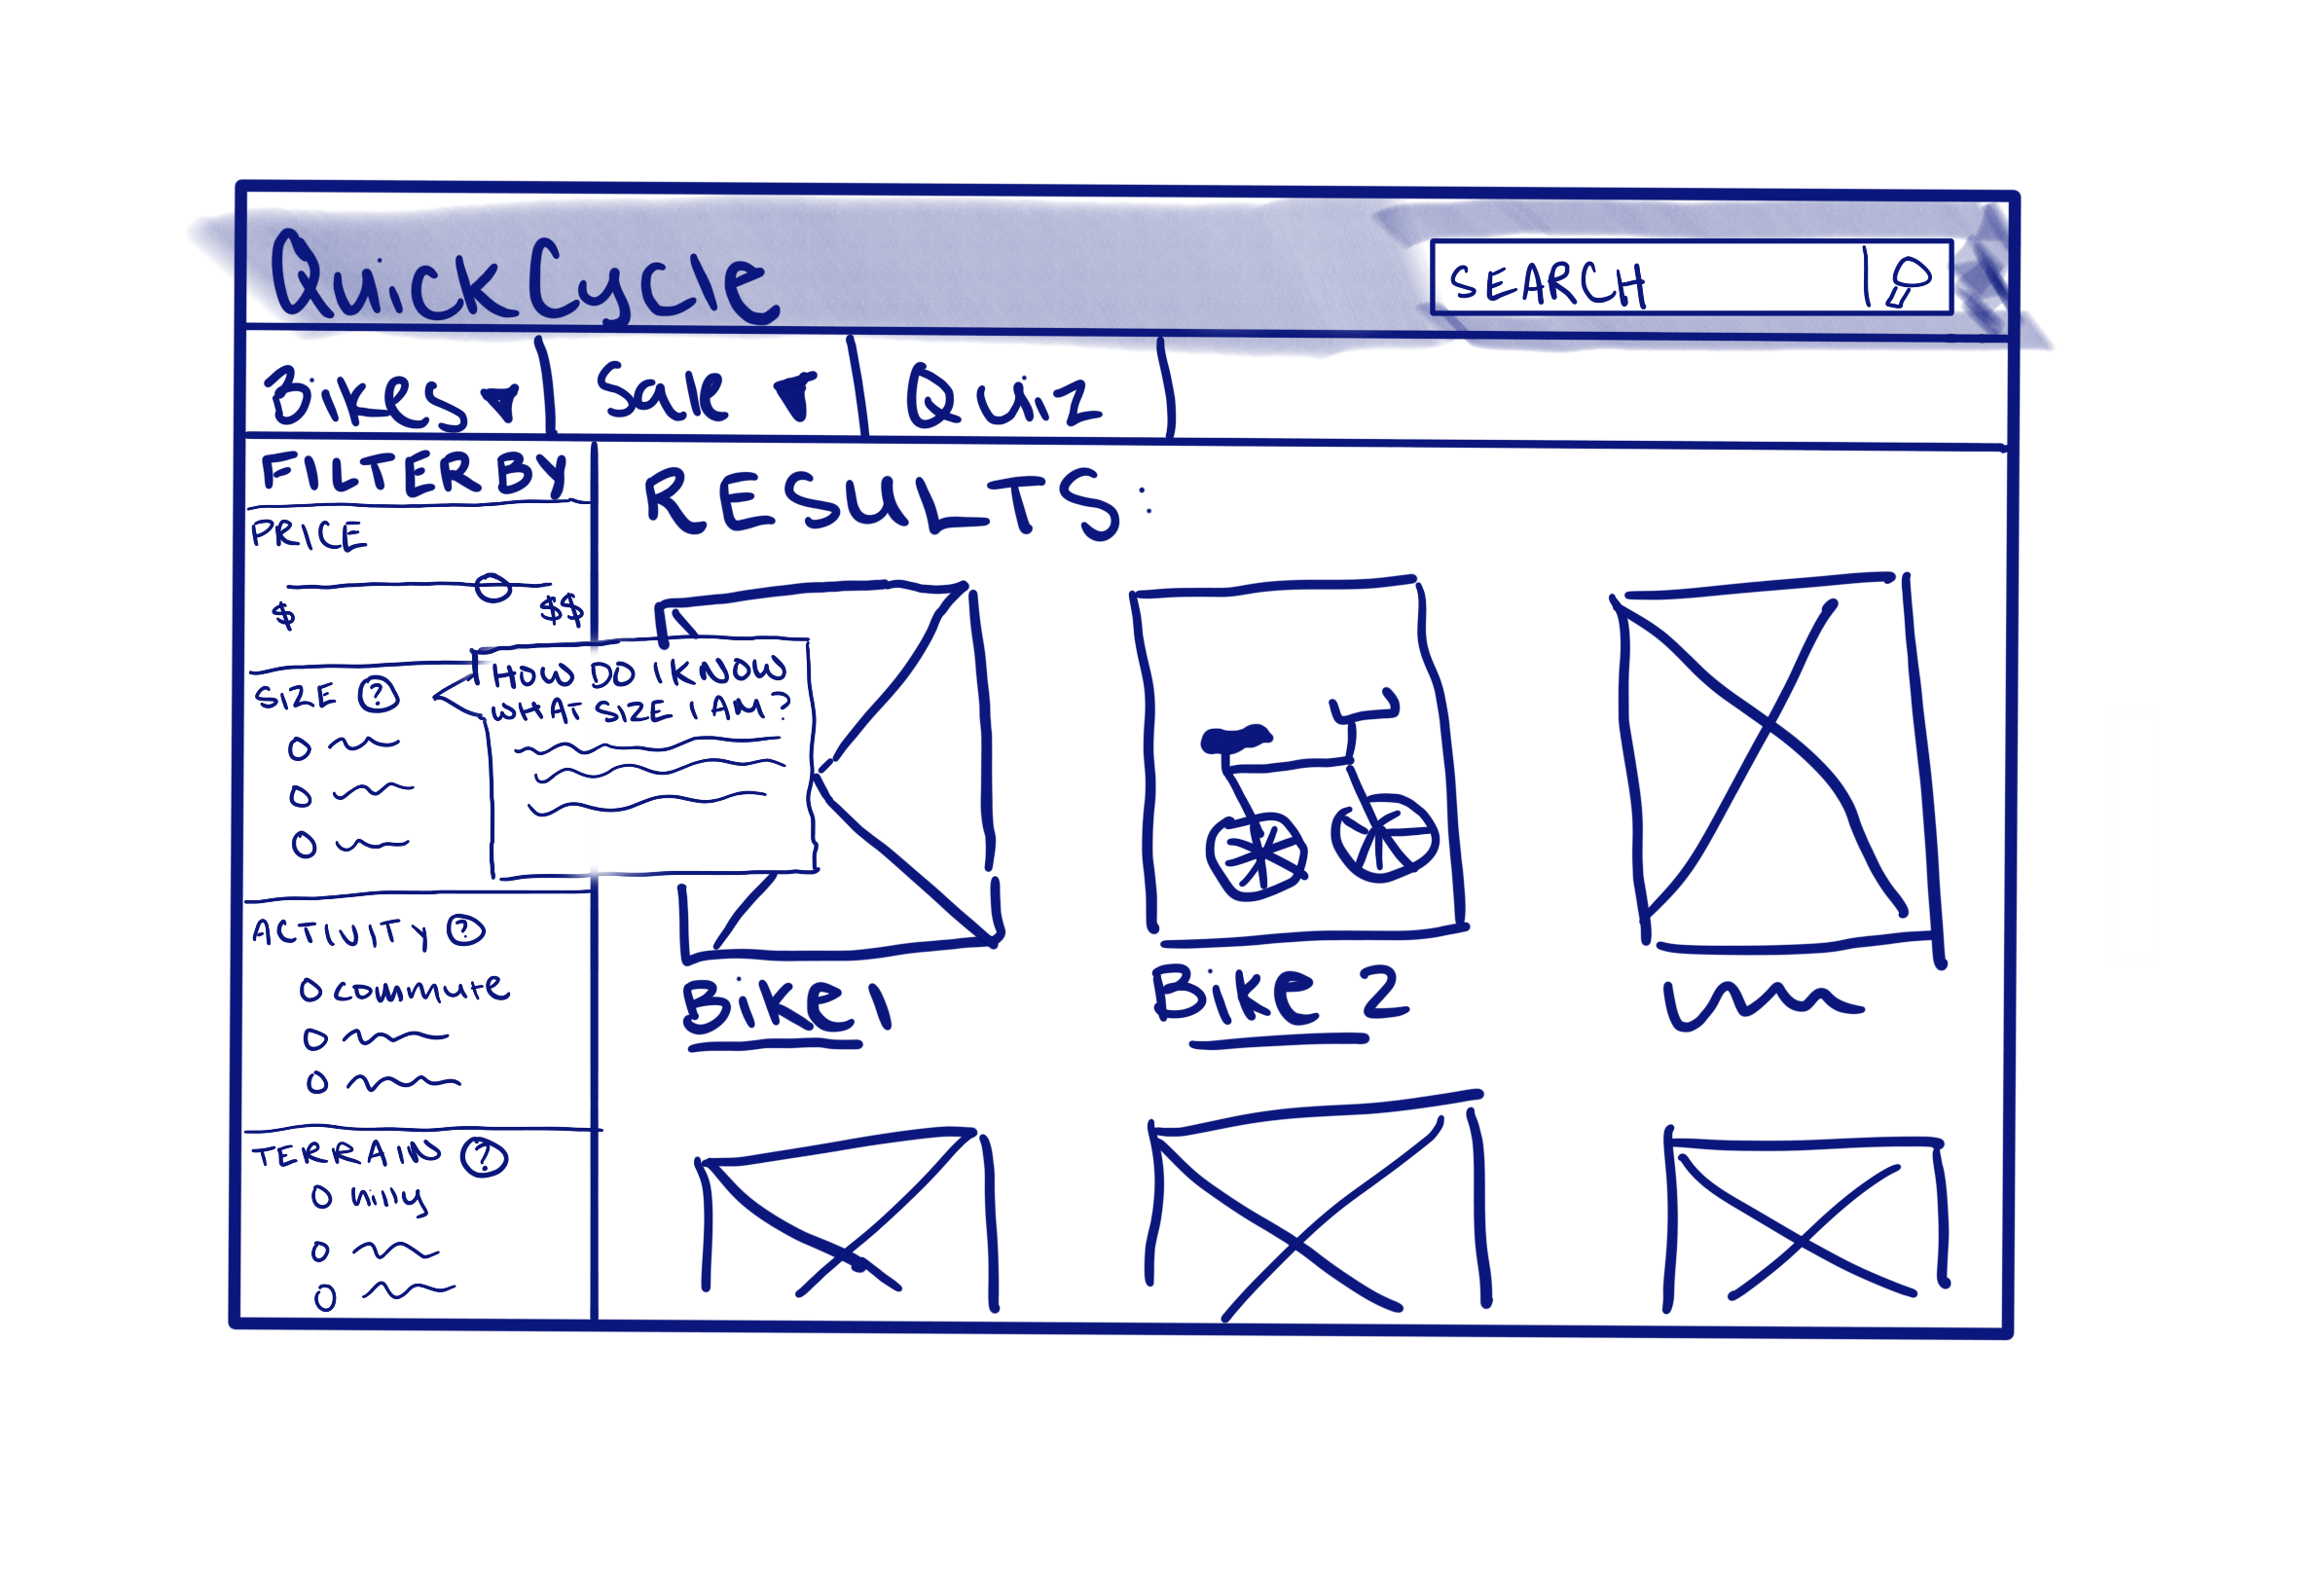 QuickCycle
SEARCH
Bikes
Sale
Quiz
FILTER BY
PRICE
$
$$
SIZE ?
HOW DO I KNOW
WHAT SIZE I AM?
ACTIVITY ?
commute
TERRAIN ?
hilly
RESULTS:
Bike 1
Bike 2